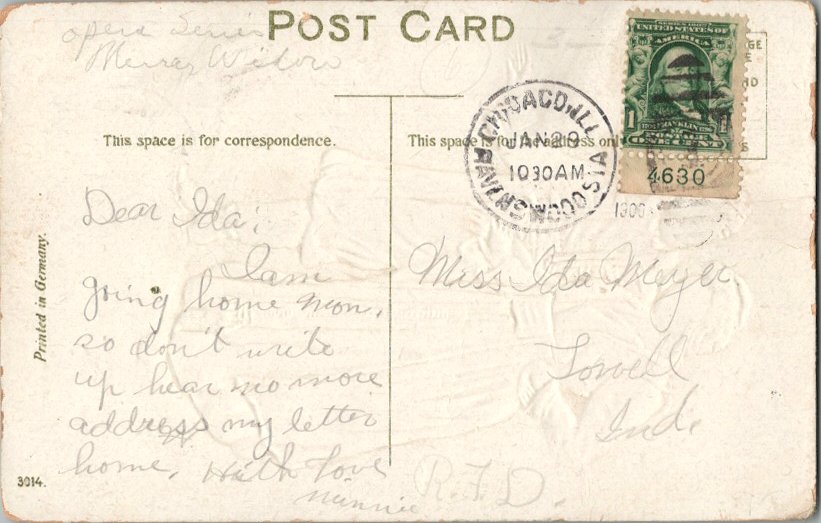 POST CARD
Opera Series
Merray Widow
This space is for correspondence.
This space is for the address only
Dear Ida;
I am
going home mon.
so don't write
up hear no more
address my letter
home. With love
Minnie
Printed in Germany.
3014.
CHICAGO, ILL.
RAVENSWOOD STA
JAN 29
1030AM
SERIES 1902
UNITED STATES OF
AMERICA
1
FRANKLIN
4630
Miss Ida Meyer
Lowell
Ind.
R.F.D.